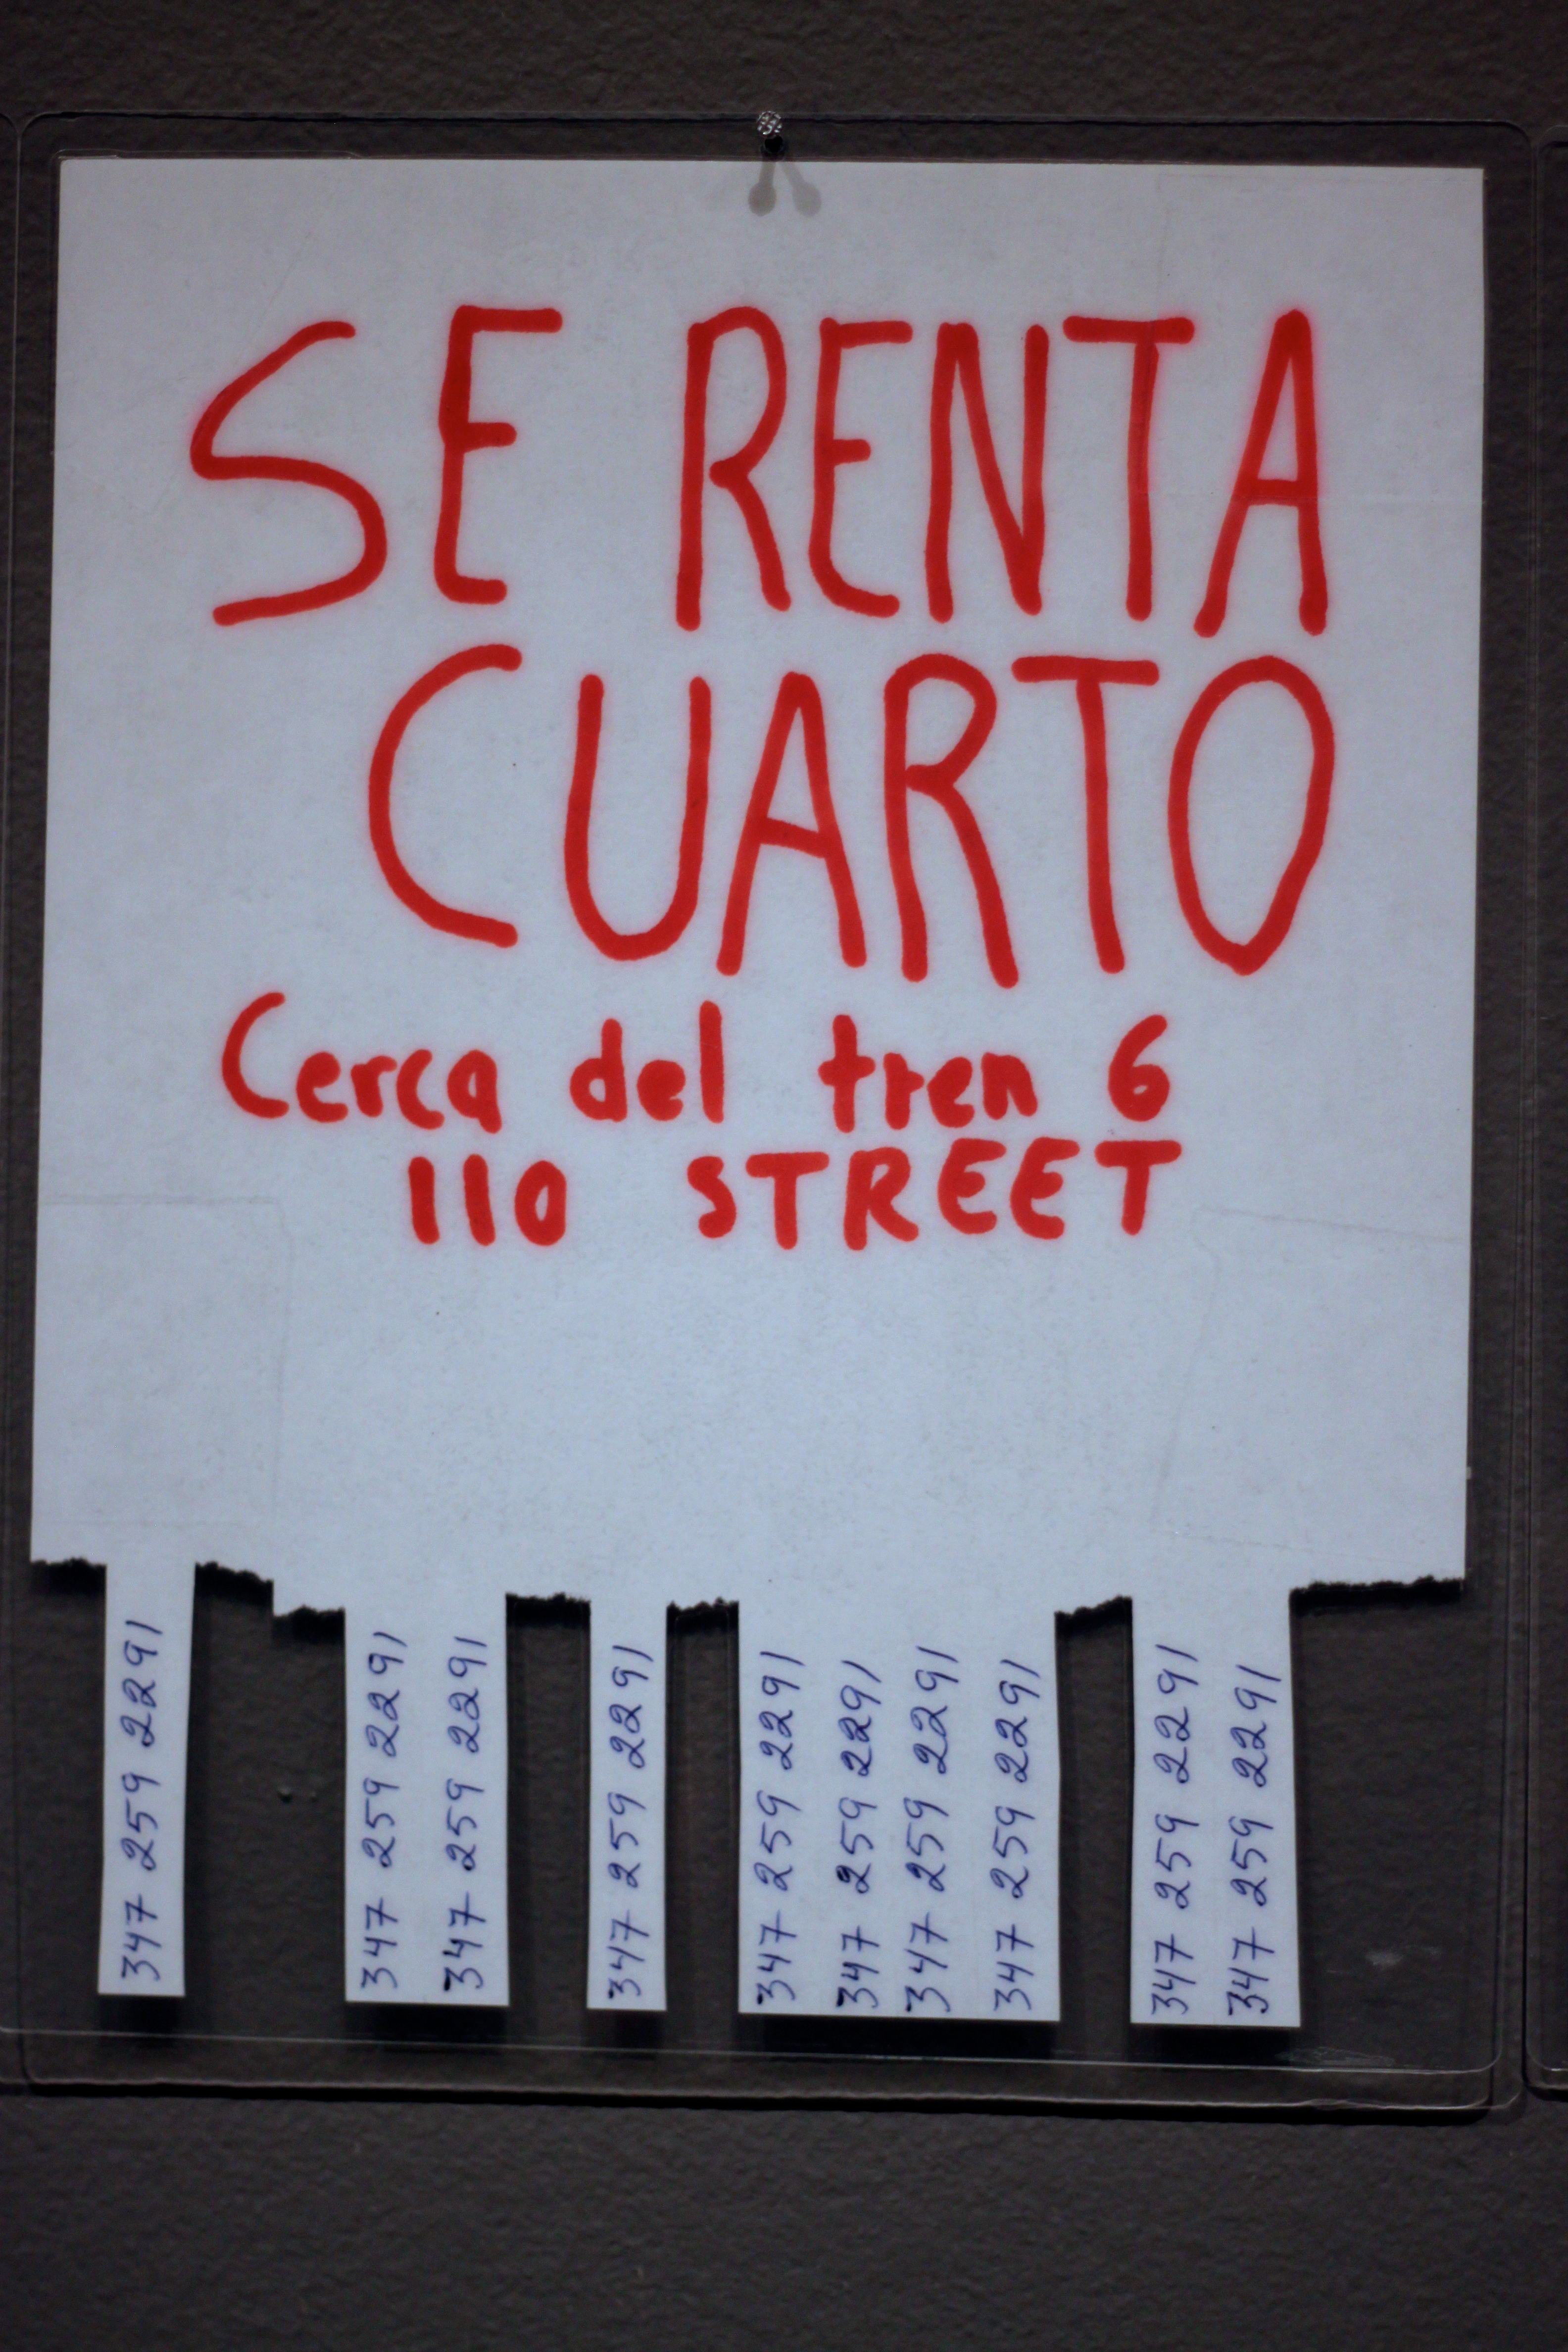 SE RENTA
CUARTO
Cerca del tren 6
110 STREET
347 259 2291
347 259 2291
347 259 2291
347 259 2291
347 259 2291
347 259 2291
347 259 2291
347 259 2291
347 259 2291
347 259 2291